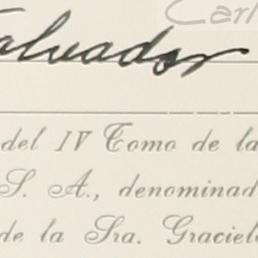 Carl
Salvador
del IV Tomo de la
S. A., denominad
de la Sra. Graciel